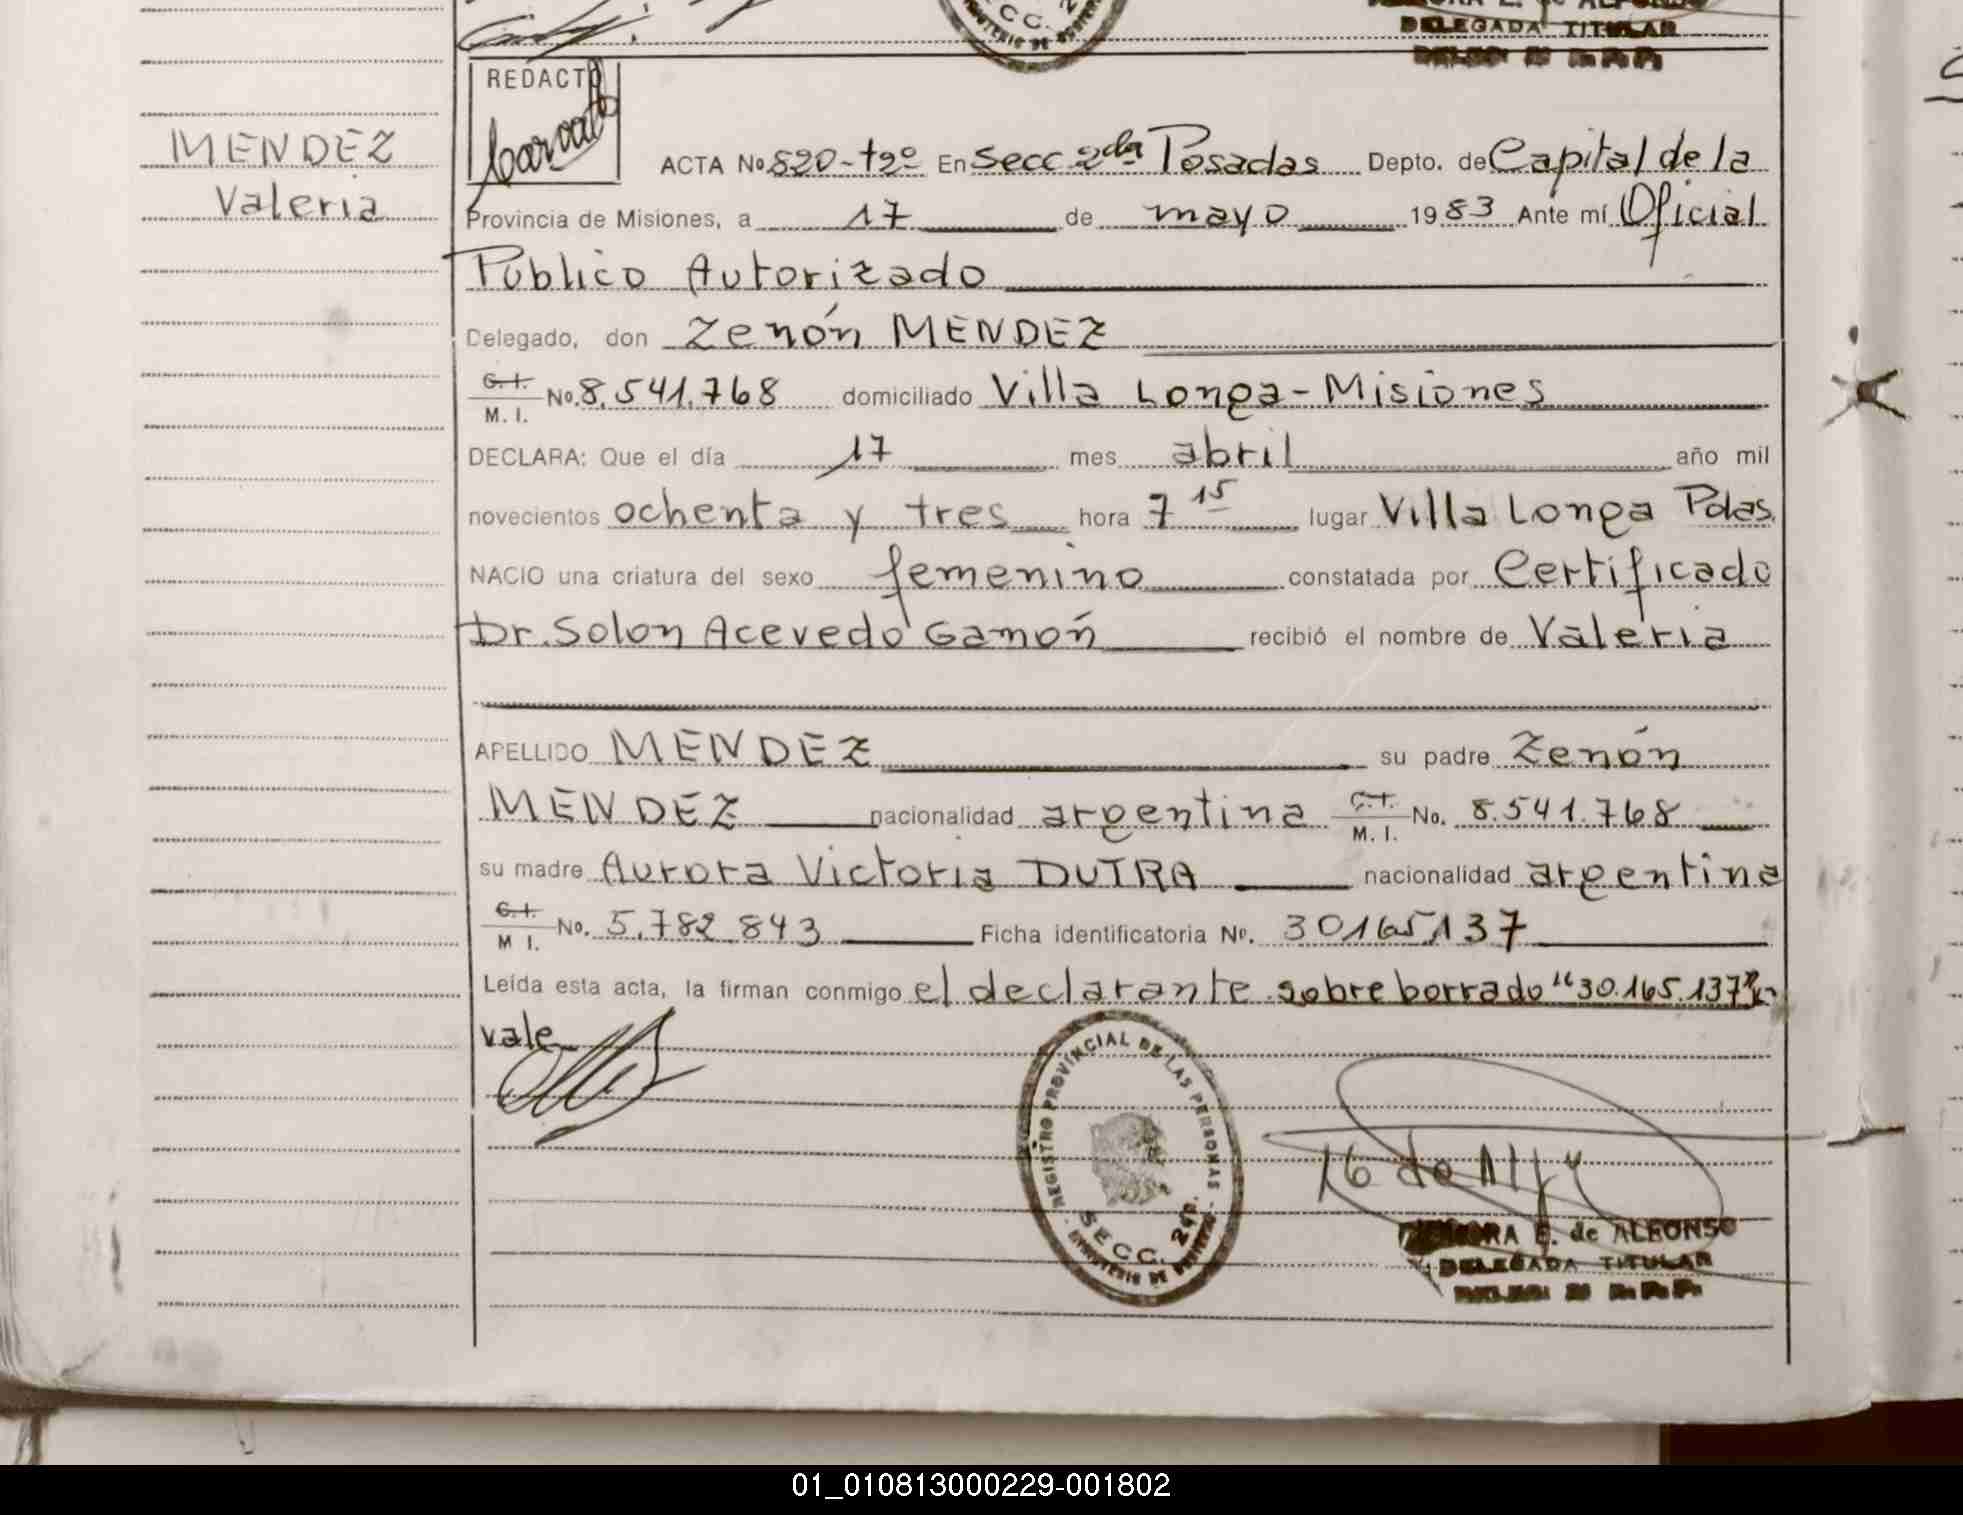 DELEGADA TITULAR
REDACTO
MENDEZ
Valeria
ACTA No 820-tº2º En Secc 2da Posadas Depto. de Capital de la
Provincia de Misiones, a 17 de mayo 1983 Ante mí Oficial
Público Autorizado
Delegado, don Zenón MENDEZ
C.I. M. I. No. 8.541.768 domiciliado Villa Longa-Misiones
DECLARA: Que el día 17 mes abril año mil
novecientos ochenta y tres hora 7 15 lugar Villa Longa Pdas.
NACIO una criatura del sexo femenino constatada por Certificado
Dr. Solon Acevedo Gamoń recibió el nombre de Valeria
APELLIDO MENDEZ su padre Zenón
MENDEZ nacionalidad argentina C.I. M. I. No. 8.541.768
su madre Aurora Victoria DUTRA nacionalidad argentina
C.I. M I. No. 5.782.843 Ficha identificatoria No. 30165137
Leída esta acta, la firman conmigo el declarante sobre borrado "30.165.137"
vale
REGISTRO PROVINCIAL DE LAS PERSONAS
SECC. 2da.
E. de ALFONSO
DELEGADA TITULAR
01_010813000229-001802